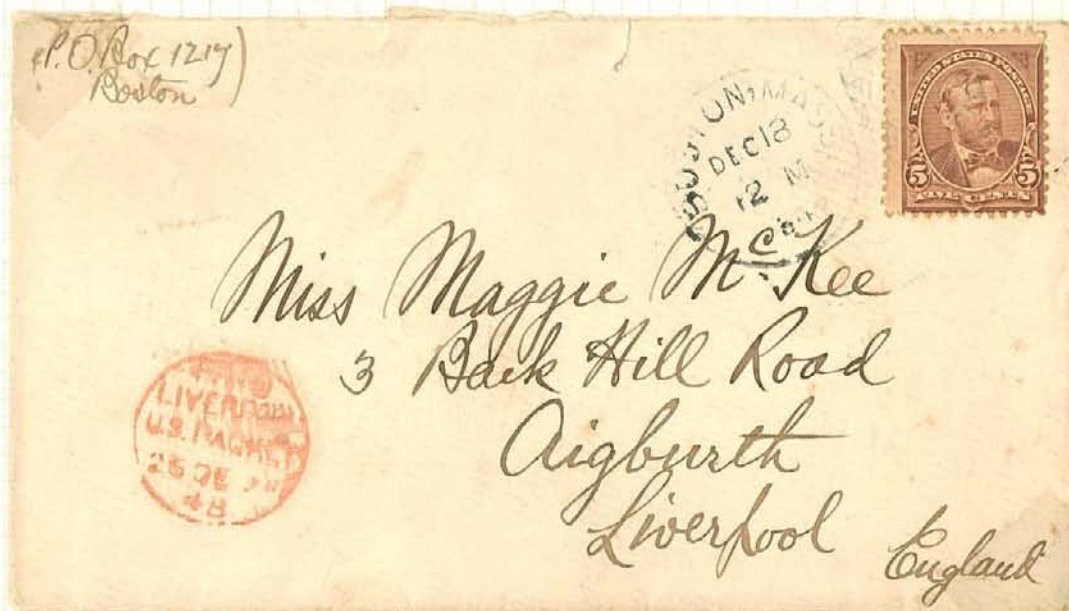 (P.O. Box 1217)
Boston
BOSTON, MASS
DEC 18
12 M
UNITED STATES POSTAGE
5 5
FIVE CENTS
Miss Maggie McKee
3 Back Hill Road
Aigburth
Liverpool
England
LIVERPOOL
U.S. PACKET
26 DE
4B